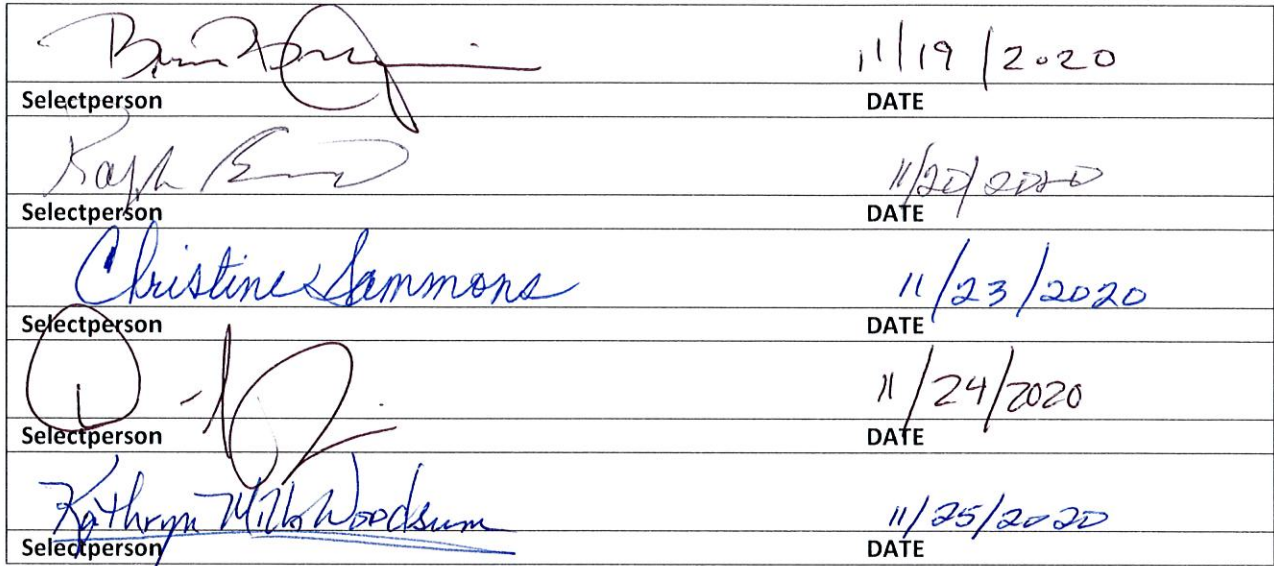 11/19/2020
Selectperson DATE
Ralph 11/20/2020
Selectperson DATE
Christine Sammons 11/23/2020
Selectperson DATE
11/24/2020
Selectperson DATE
Kathryn Mills Woodsum 11/25/2020
Selectperson DATE